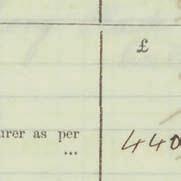 £
urer as per 440
...